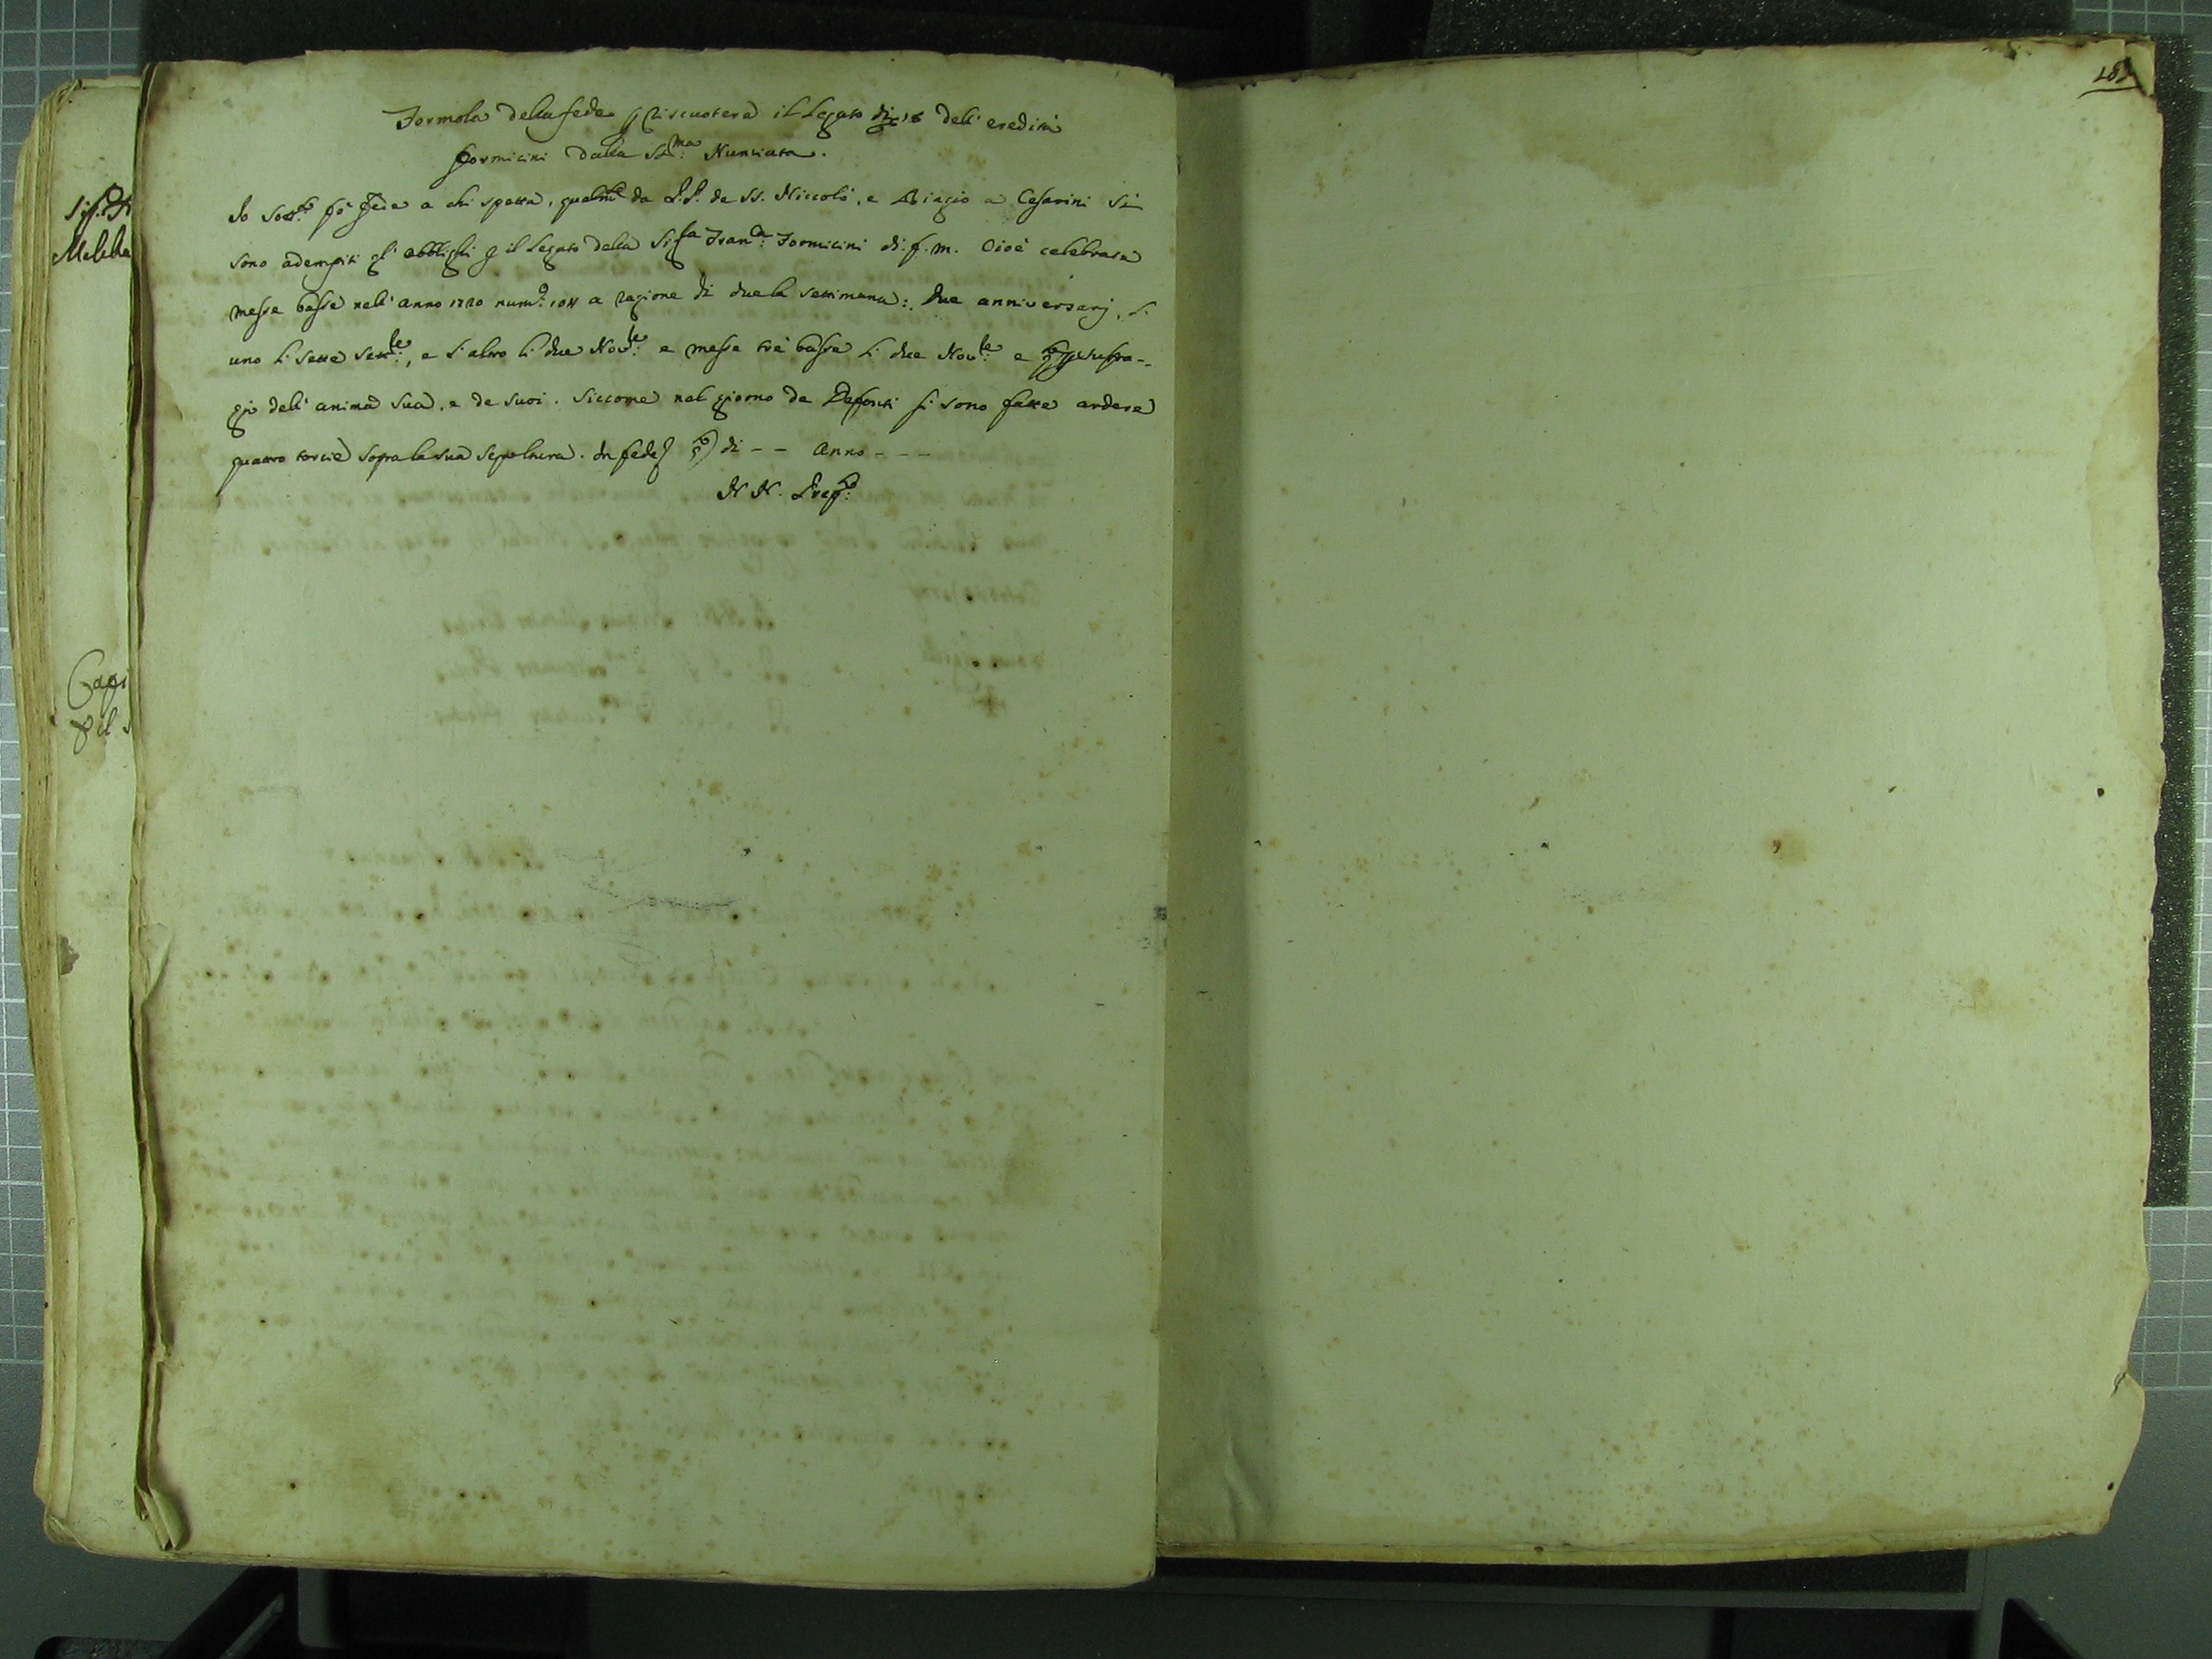 182
Formola della fede p riscuotere il Legato di 18 dell'eredità
Formicini dalla SS.ma Nunciata.
Io sott.o fò fede a chi spetta, qualm.te da P.P. de SS. Niccolò, e Biagio a Cesarini si
sono adempiti gl'obblighi p il Legato della Sig.ra Fran.ca Formicini di f. m. Cioè celebrare
messe basse nell'anno 1720 num.o 104 a ragione di due la settimana: Due anniversarj, l'
uno li sette Sett.re, e l'altro li due Nov.re e messe trè basse li due Nov.re e suffra-
gio dell'anima sua, e de suoi. Siccome nel giorno de Defonti si sono fatte ardere
quattro torcie sopra la sua sepoltura. In fede di - - Anno - - -
N N. Prep.to
Melch
Capi